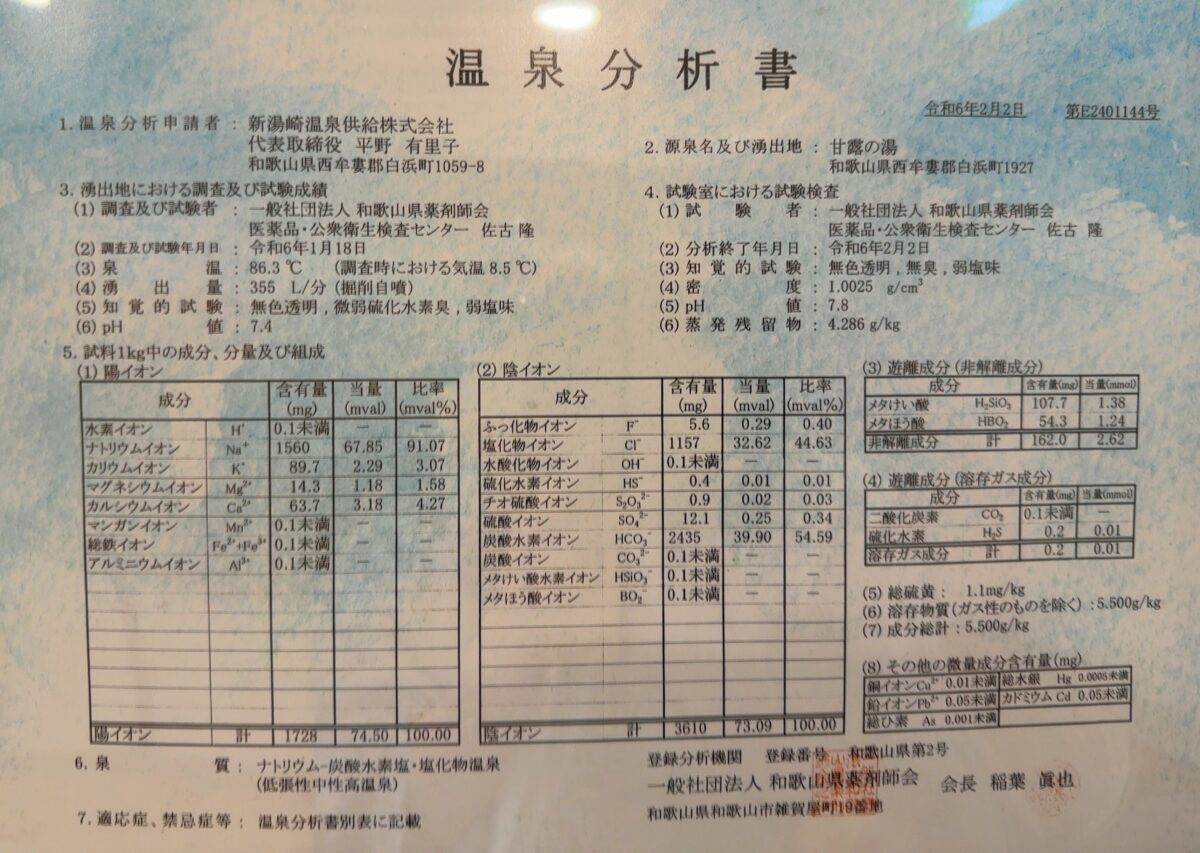 温泉分析書
令和6年2月2日 第E2401144号
1. 温泉分析申請者 : 新湯崎温泉供給株式会社
代表取締役 平野 有里子
和歌山県西牟婁郡白浜町1059-8
2. 源泉名及び湧出地 : 甘露の湯
和歌山県西牟婁郡白浜町1927
3. 湧出地における調査及び試験成績
(1) 調査及び試験者 : 一般社団法人 和歌山県薬剤師会
医薬品・公衆衛生検査センター 佐古 隆
(2) 調査及び試験年月日 : 令和6年1月18日
(3) 泉温 : 86.3 ℃ (調査時における気温 8.5 ℃)
(4) 湧出量 : 355 L/分 (掘削自噴)
(5) 知覚的試験 : 無色透明 , 微弱硫化水素臭 , 弱塩味
(6) pH値 : 7.4
4. 試験室における試験検査
(1) 試験者 : 一般社団法人 和歌山県薬剤師会
医薬品・公衆衛生検査センター 佐古 隆
(2) 分析終了年月日 : 令和6年2月2日
(3) 知覚的試験 : 無色透明 , 無臭 , 弱塩味
(4) 密度 : 1.0025 g/cm³
(5) pH値 : 7.8
(6) 蒸発残留物 : 4.286 g/kg
5. 試料1kg中の成分、分量及び組成
(1) 陽イオン
成分 含有量(mg) 当量(mval) 比率(mval%)
水素イオン H⁺ 0.1未満 － －
ナトリウムイオン Na⁺ 1560 67.85 91.07
カリウムイオン K⁺ 89.7 2.29 3.07
マグネシウムイオン Mg²⁺ 14.3 1.18 1.58
カルシウムイオン Ca²⁺ 63.7 3.18 4.27
マンガンイオン Mn²⁺ 0.1未満 － －
総鉄イオン Fe²⁺+Fe³⁺ 0.1未満 － －
アルミニウムイオン Al³⁺ 0.1未満 － －
陽イオン 計 1728 74.50 100.00
(2) 陰イオン
成分 含有量(mg) 当量(mval) 比率(mval%)
ふっ化物イオン F⁻ 5.6 0.29 0.40
塩化物イオン Cl⁻ 1157 32.62 44.63
水酸化物イオン OH⁻ 0.1未満 － －
硫化水素イオン HS⁻ 0.4 0.01 0.01
チオ硫酸イオン S₂O₃²⁻ 0.9 0.02 0.03
硫酸イオン SO₄²⁻ 12.1 0.25 0.34
炭酸水素イオン HCO₃⁻ 2435 39.90 54.59
炭酸イオン CO₃²⁻ 0.1未満 － －
メタけい酸水素イオン HSiO₃⁻ 0.1未満 － －
メタほう酸イオン BO₂⁻ 0.1未満 － －
陰イオン 計 3610 73.09 100.00
(3) 遊離成分 (非解離成分)
成分 含有量(mg) 当量(mmol)
メタけい酸 H₂SiO₃ 107.7 1.38
メタほう酸 HBO₂ 54.3 1.24
非解離成分 計 162.0 2.62
(4) 遊離成分 (溶存ガス成分)
成分 含有量(mg) 当量(mmol)
二酸化炭素 CO₂ 0.1未満 －
硫化水素 H₂S 0.2 0.01
溶存ガス成分 計 0.2 0.01
(5) 総硫黄 : 1.1mg/kg
(6) 溶存物質 (ガス性のものを除く) : 5.500g/kg
(7) 成分総計 : 5.500g/kg
(8) その他の微量成分含有量(mg)
銅イオンCu²⁺ 0.01未満 総水銀 Hg 0.0005未満
鉛イオンPb²⁺ 0.05未満 カドミウム Cd 0.05未満
総ひ素 As 0.001未満
6. 泉質 : ナトリウム-炭酸水素塩・塩化物温泉
(低張性中性高温泉)
7. 適応症、禁忌症等 : 温泉分析書別表に記載
登録分析機関 登録番号 和歌山県第2号
一般社団法人 和歌山県薬剤師会 会長 稲葉 眞也
和歌山県和歌山市雑賀屋町19番地